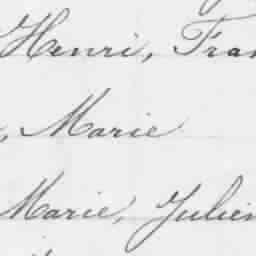 Henri, Fran
, Marie
Marie, Julien